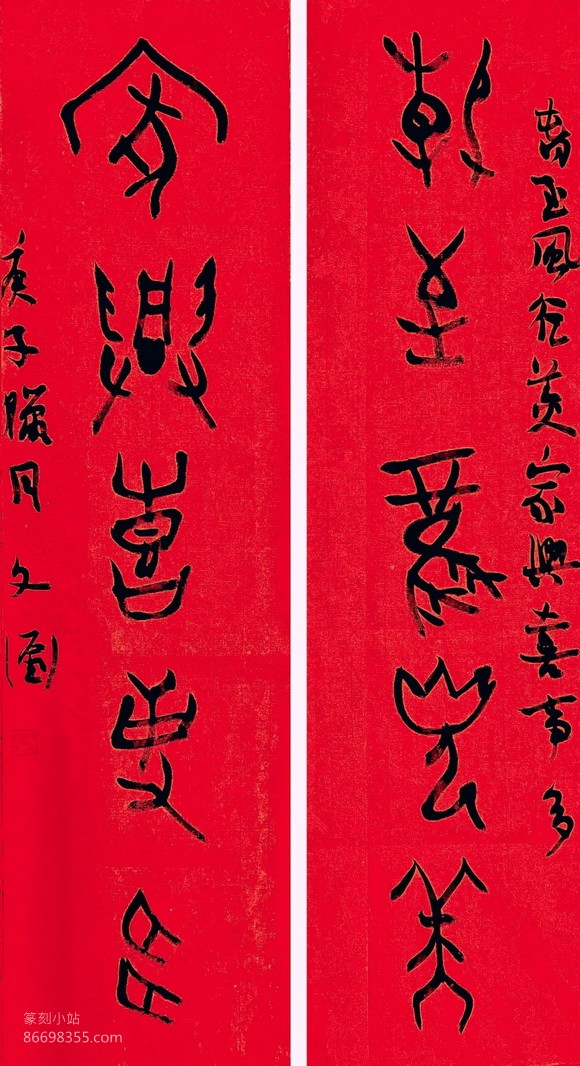 春至風光美家興喜事多
春至風光美
家興喜事多
庚子臘月 文
篆刻小站
86698355.com